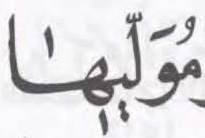 مُوَلّٖيهَا